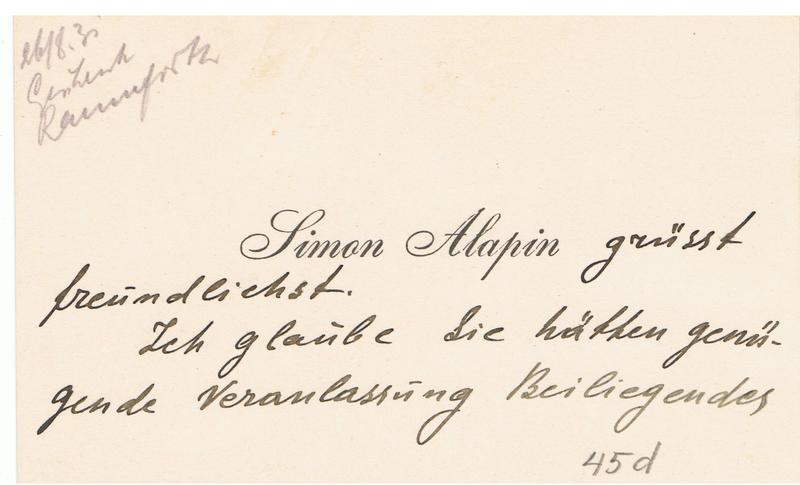 26/8.3
Geschenk
Rannforth
Simon Alapin grüsst
freundlichst.
Ich glaube Sie hätten genü-
gende Veranlassung Beiliegendes
45d